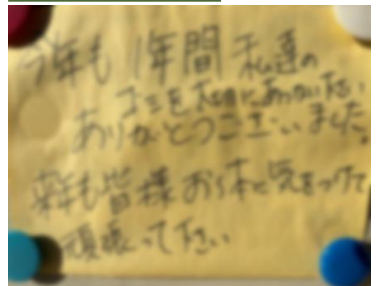 今年も 1年間 私達の
ゴミを
ありがとうございました。
来年も皆様 お体に気をつけて
頑張って下さい